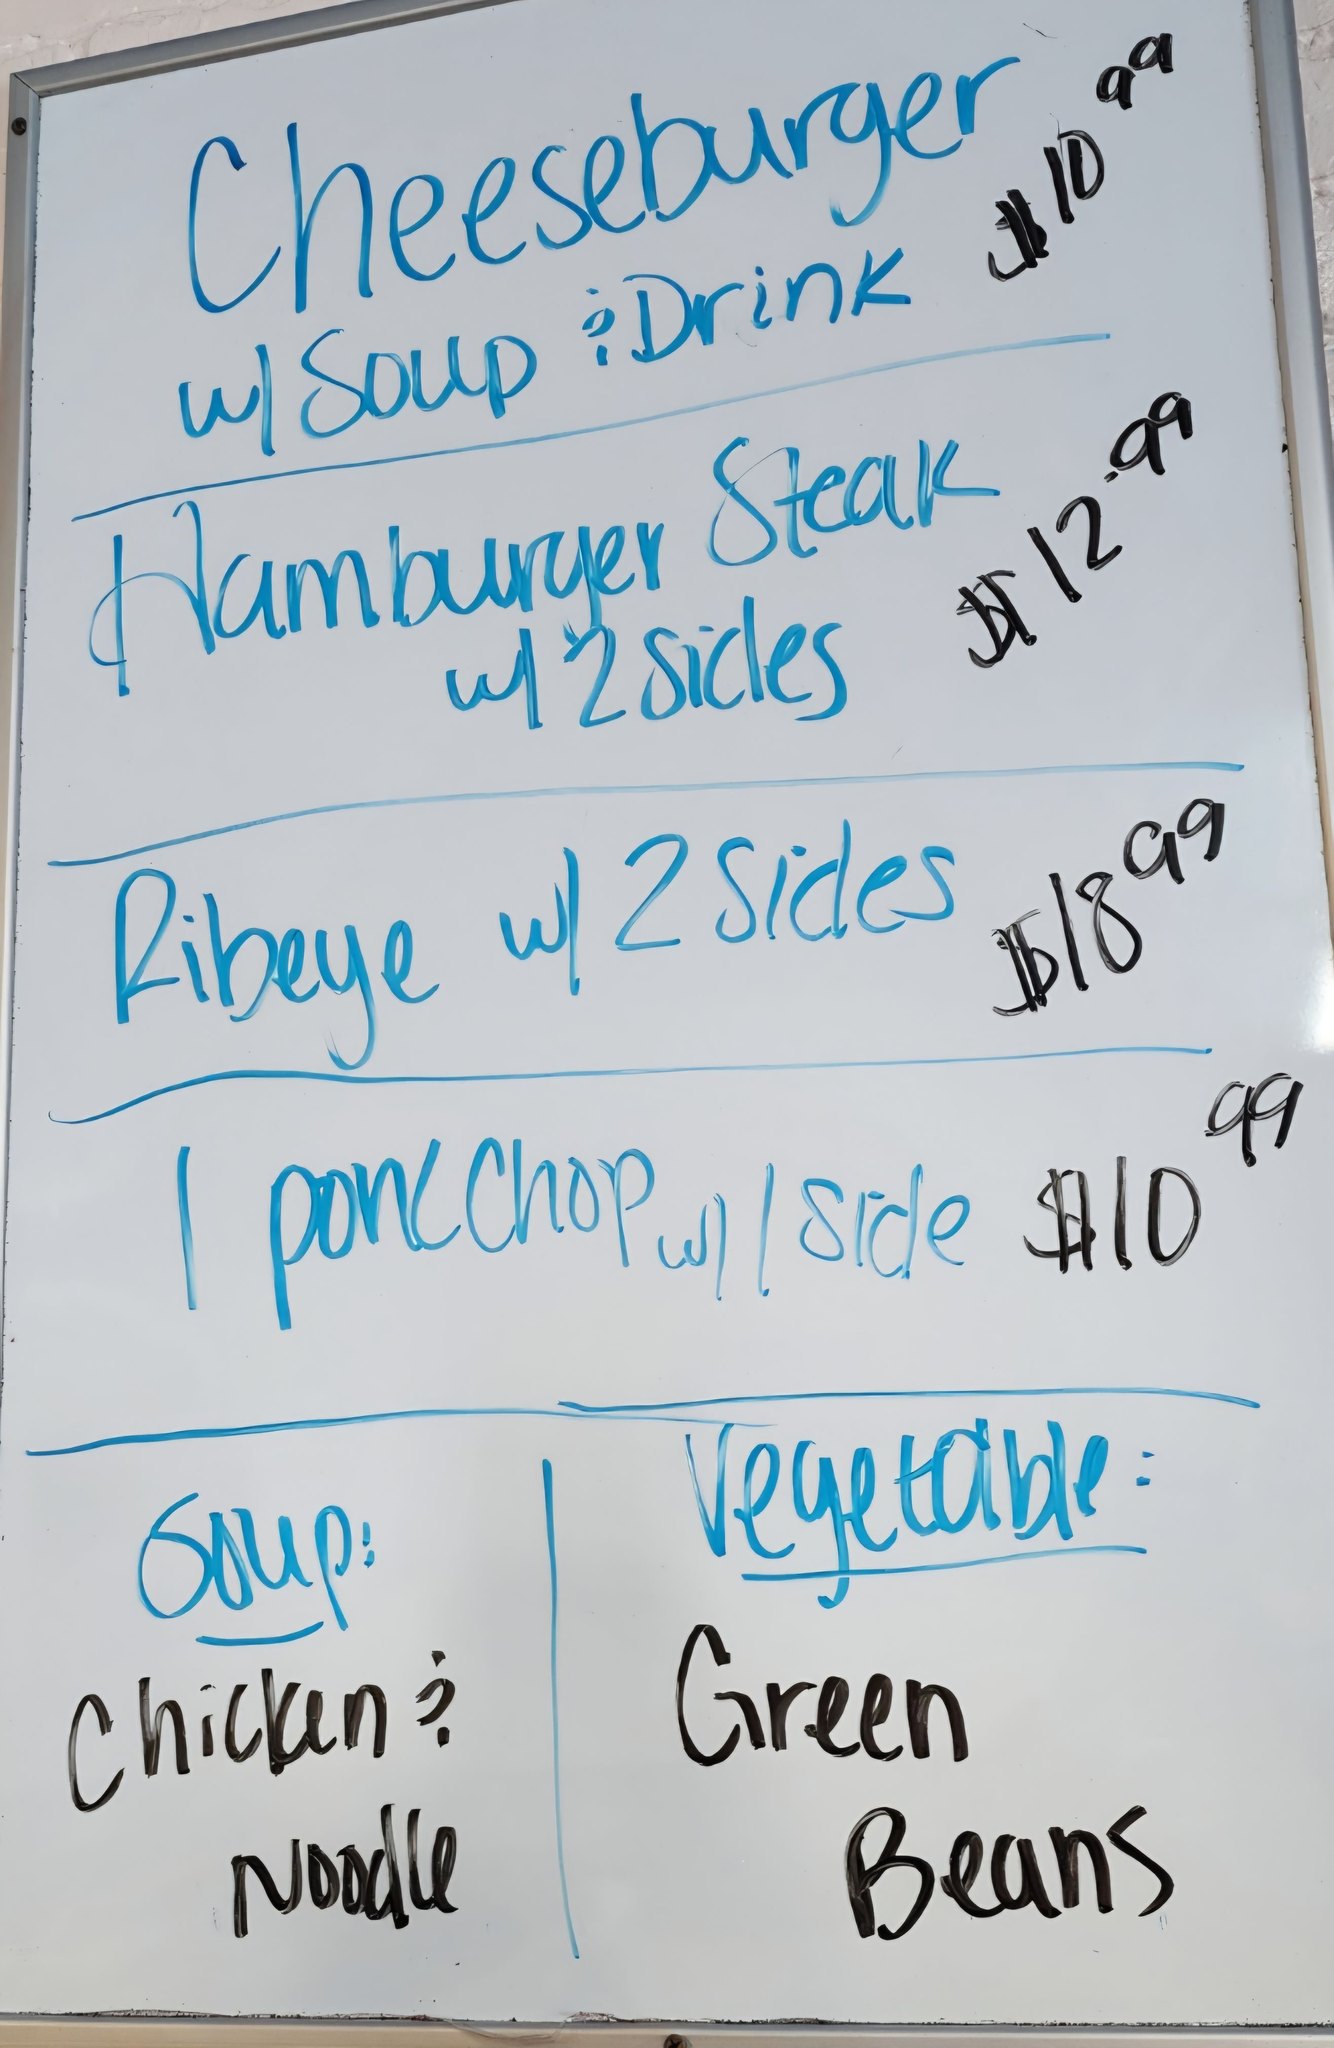 Cheeseburger $10 99
w/ Soup & Drink
Hamburger Steak $12.99
w/ 2 sides
Ribeye w/ 2 sides $18 99
1 pork Chop w/ 1 side $10 99
Soup:
Chicken &
Noodle
Vegetable:
Green
Beans